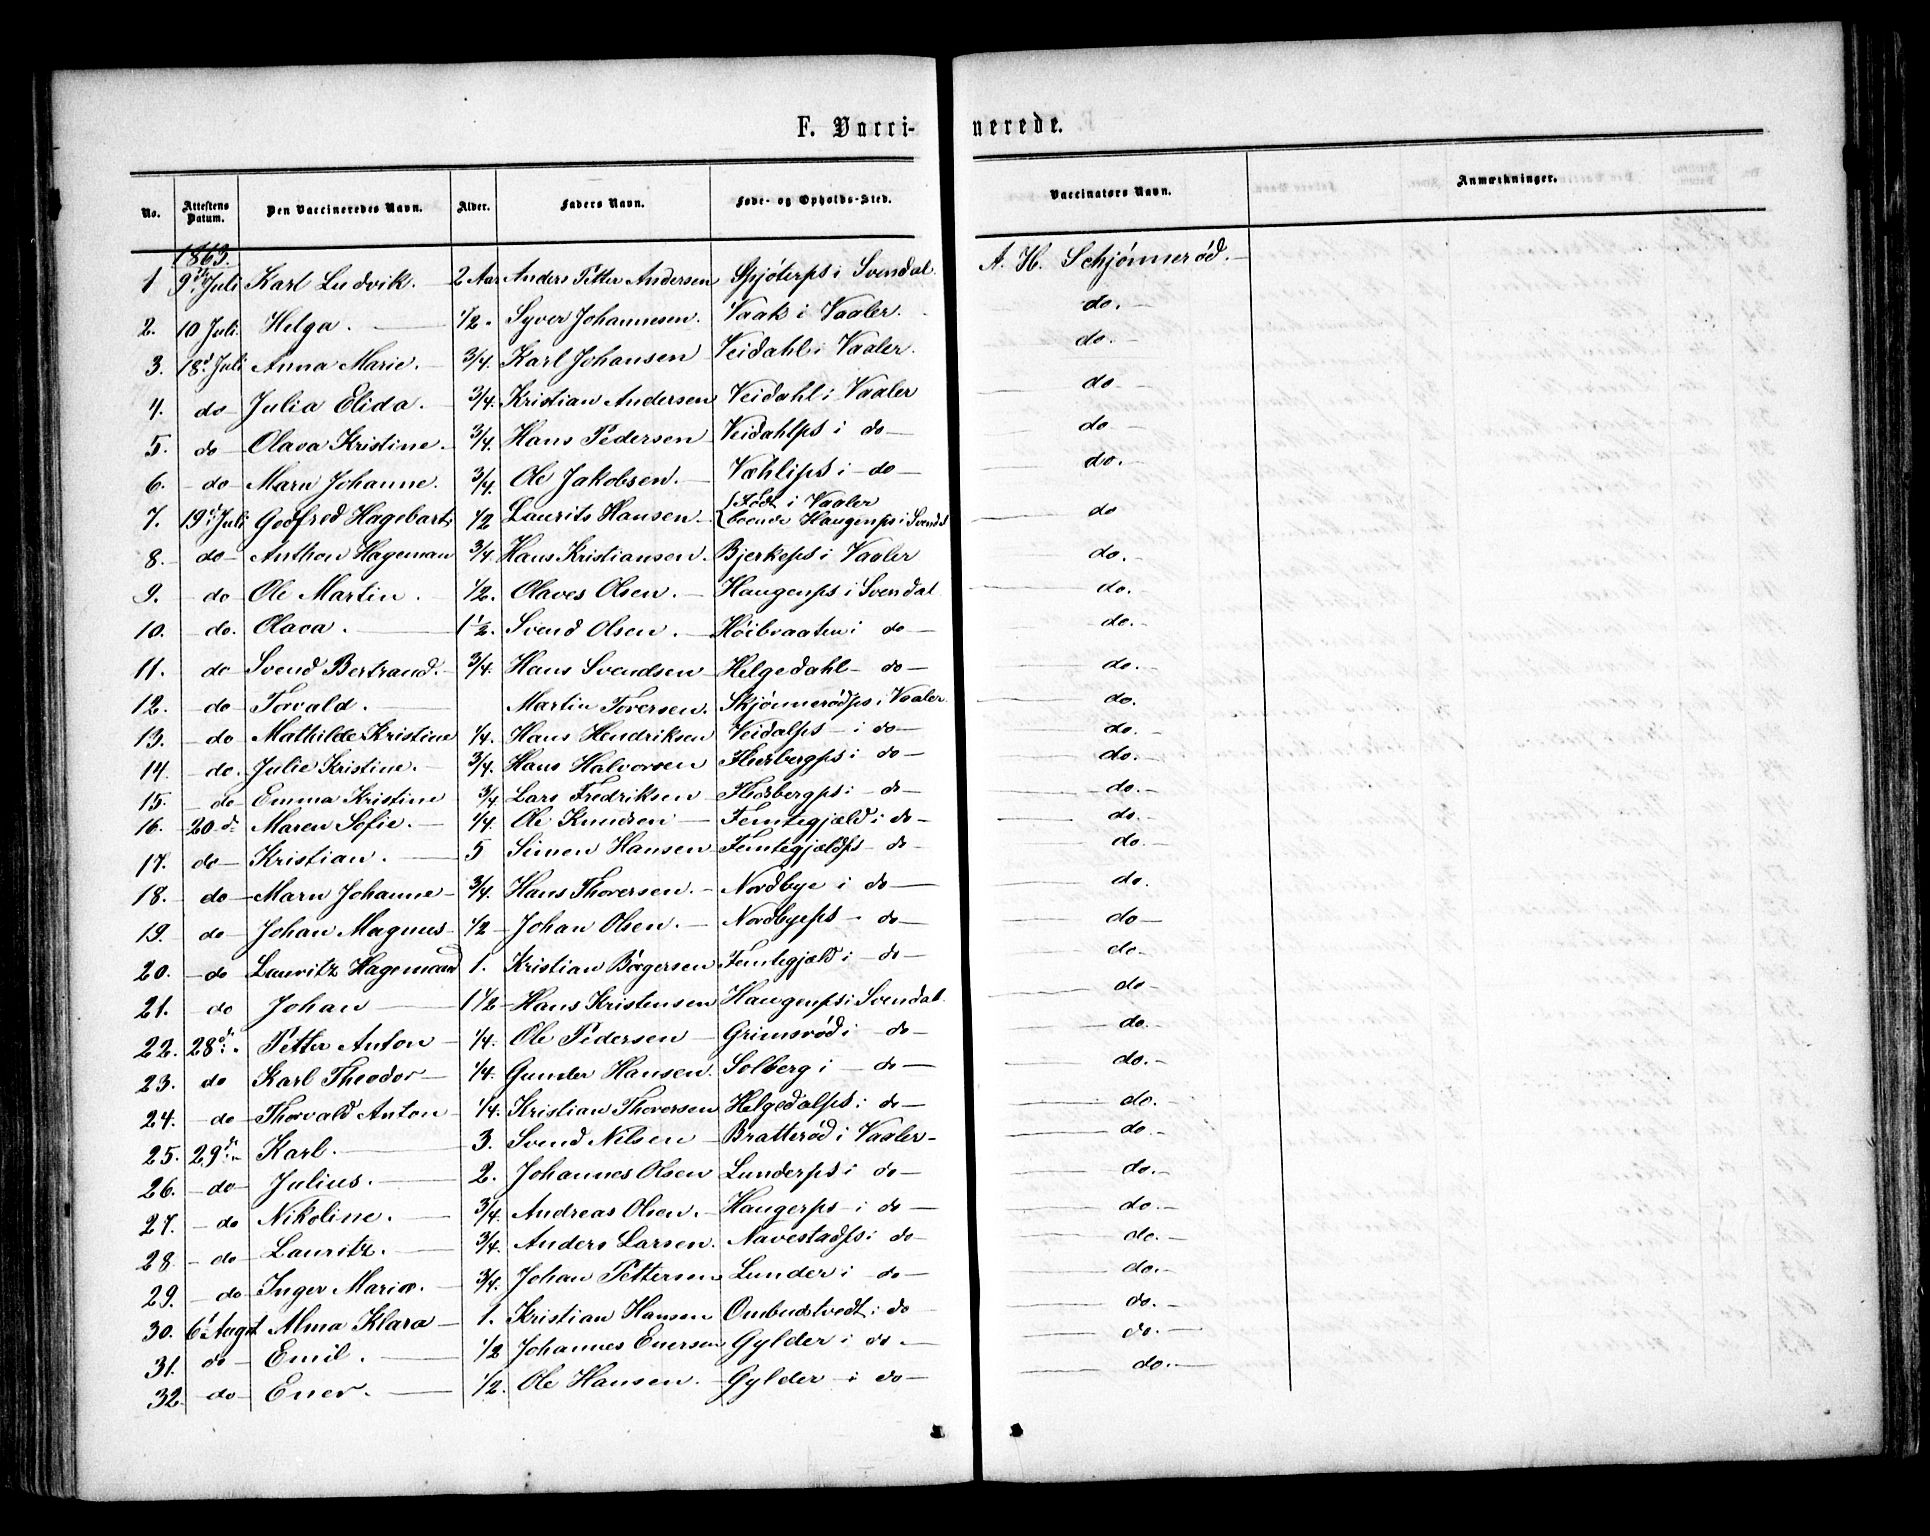 F. Vacci- nerede.
No. Attestens Datum. Den Vaccineredes Navn. Alder. Faders Navn. Føde- og Opholds-Sted. Vaccinatørs Navn. Anmærkninger.
1863.
1 9de Juli Karl Ludvik. 2 Aar Anders Petter Andersen Spjöterps i Svendal. A. H. Schjönnerød.
2. 10 Juli Helga. 1/2. Syver Johannesen. Vaak i Vaaler. do.
3. 18d Juli Anna Marie. 3/4. Karl Johansen Veidahl i Vaaler. do.
4. do Julia Elida. 3/4. Kristian Andersen Veidahl i Vaaler do
5. do Olava Kristine. 3/4. Hans Pedersen Veidahlps i do do
6. do Marn Johanne. 3/4. Ole Jakobsen. Væhlips i do do.
7. 19d Juli Godfred Hagebart 1/2 Laurits Hansen. Født i Vaaler
boende Haugenps i Svendl do
8. do Anthon Hageman 3/4. Hans Kristiansen. Bjerkeps i Vaaler do.
9. do Ole Martin. 1/2. Olaves Olsen. Haugenps i Svendal do.
10. do. Olava. 1 1/2. Svend Olsen. Höibraaten i do do.
11. do Svend Bertrand. 3/4. Hans Svendsen Helgedahl do do.
12. do Torvald. Martin Toversen. Skjönnerödps i Vaaler do.
13. do Mathilde Kristine 1/4. Hans Hendriksen Veidalps i do do.
14. do. Julie Kristine. 3/4. Hans Halvorsen ps i do do.
15. do Emma Kristine 3/4 Lars Fredriksen ps i do do.
16. 20 d. Maren Sofie. 1/4 Ole Knudsen Femtegjæld i do do.
17. do Kristian. 5 Simen Hansen Femtegjældps do do.
18. do Marn Johanne 3/4. Hans Thoversen. Nordbye i do do.
19. do Johan Magnus 1/2 Johan Olsen. Nordbyeps do do
20. do Lauritz Hagemand 1. Kristian Börgersen Femtegjæld i do do
21. do Johan 1 1/2 Hans Kristensen Haugenps i Svendal do
22. 28d. Petter Anton 1/4. Ole Pedersen Grimsröd i do do.
23. do Karl Theodor 1/4. Gunder Hansen. Solberg i do do.
24. do Thorvald Anton 1/4. Kristian Thoversen Helgedalps i do do.
25. 29d. Karl. 3. Svend Nilsen Bratteröd i Vaaler do.
26. do Julius. 2. Johannes Olsen Lunderps i do do.
27. do Nikoline. 3/4. Andreas Olsen. Haugerps i do do.
28. do Lauritz. 3/4. Anders Larsen. Navestadps i do do.
29. do Inger Maria. 3/4. Johan Pettersen Lunder i do do.
30. 6t Augst Alma Klara 1. Kristian Hansen Ombudstvedt i do do.
31. do Emil. 1/2 Johannes Enersen Gylder i do. do.
32. do Ener. 1/2. Ole Hansen. Gylder i do do.